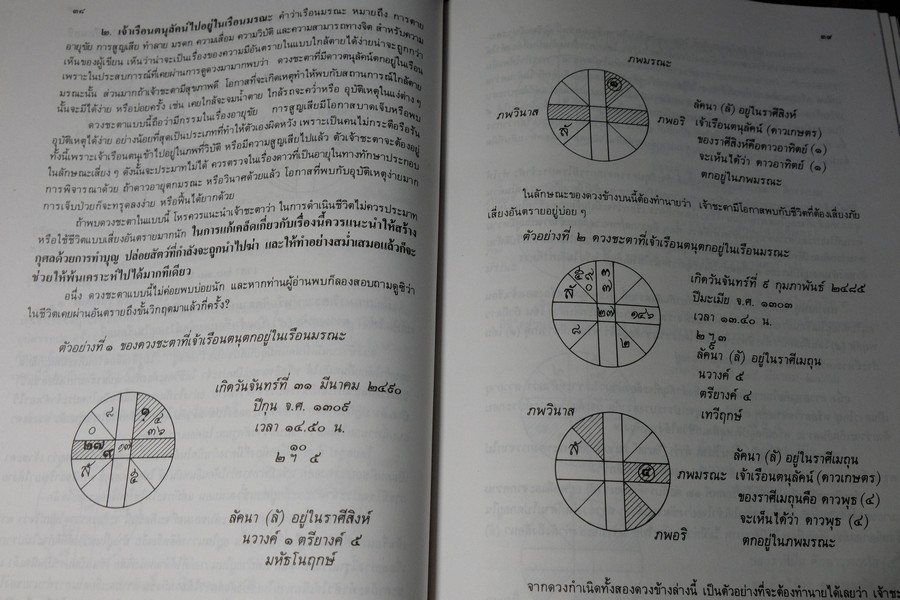 ๓๘
๒. เจ้าเรือนตนุลัคน์ไปอยู่ในเรือนมรณะ คำว่าเรือนมรณะ หมายถึง การตาย
อายุขัย การสูญเสีย ทำลาย มรดก ความเสื่อม ความวิบัติ และความสามารถทางจิต สำหรับความ
เห็นของผู้เขียน เห็นว่าน่าจะเป็นเรื่องของความมีอันตรายในแบบใกล้ตายได้ง่ายน่าจะถูกกว่า
เพราะในประสบการณ์ที่เคยผ่านการดูดวงมามากพบว่า ดวงชะตาที่มีดาวตนุลัคน์ตกอยู่ในเรือน
มรณะนั้น ส่วนมากถ้าเจ้าชะตามีสุขภาพดี โอกาสที่จะเกิดเหตุทำให้พบกับสถานการณ์ใกล้ตาย
นั้นจะมีได้ง่าย หรือบ่อยครั้ง เช่น เคยใกล้จะจมน้ำตาย ใกล้รถจะคว่ำหรือ อุบัติเหตุในแง่ต่าง ๆ
ดวงชะตาแบบนี้ถือว่ามีกรรมในเรื่องอายุขัย การสูญเสียมีโอกาสบาดเจ็บหรือพบ
อุบัติเหตุได้ง่าย อย่างน้อยที่สุดเป็นประเภทที่ทำให้ตัวเองผิดหวัง เพราะเป็นคนไม่กระตือรือร้น
ทั้งนี้เพราะเจ้าเรือนตนุเข้าไปอยู่ในภพที่วิบัติ หรือมีความสูญเสียไปแล้ว ตัวเจ้าชะตาจะต้องอยู่
ในลักษณะเสี่ยง ๆ ดังนั้นจะประมาทไม่ได้ ควรตรวจในเรื่องดาวที่เป็นอายุในทางทักษาประกอบ
การพิจารณาด้วย ถ้าดาวอายุตกมรณะ หรือวินาศด้วยแล้ว โอกาสที่พบกับอุบัติเหตุง่ายมาก
การเจ็บป่วยก็จะทรุดลงง่าย หรือฟื้นได้ยากด้วย
ถ้าพบดวงชะตาในแบบนี้ โหรควรแนะนำเจ้าชะตาว่า ในการดำเนินชีวิตไม่ควรประมาท
หรือใช้ชีวิตแบบเสี่ยงอันตรายมากนัก ในการแก้เคล็ดเกี่ยวกับเรื่องนี้ควรแนะนำให้สร้าง
กุศลด้วยการทำบุญ ปล่อยสัตว์ที่กำลังจะถูกนำไปฆ่า และให้ทำอย่างสม่ำเสมอแล้วก็จะ
ช่วยให้พ้นเคราะห์ไปได้มากทีเดียว
อนึ่ง ดวงชะตาแบบนี้ไม่ค่อยพบบ่อยนัก และหากท่านผู้อ่านพบก็ลองสอบถามดูซิว่า
ในชีวิตเคยผ่านอันตรายถึงขั้นวิกฤตมาแล้วกี่ครั้ง?
ตัวอย่างที่ ๑ ของดวงชะตาที่เจ้าเรือนตนุตกอยู่ในเรือนมรณะ
เกิดวันจันทร์ที่ ๓๑ มีนาคม ๒๔๙๐
ปีกุน จ.ศ. ๑๓๐๙
เวลา ๑๔.๕๐ น.
๑๐
๒ ฯ ๕
ลัคนา (ลั) อยู่ในราศีสิงห์
นวางค์ ๑ ตรียางค์ ๕
มหัธโนฤกษ์
๓๙
ภพมรณะ
ภพวินาส
ภพอริ
ลัคนา (ลั) อยู่ในราศีสิงห์
เจ้าเรือนตนุลัคน์ (ดาวเกษตร)
ของราศีสิงห์คือดาวอาทิตย์ (๑)
จะเห็นได้ว่า ดาวอาทิตย์ (๑)
ตกอยู่ในภพมรณะ
ในลักษณะของดวงข้างบนนี้ต้องทำนายว่า เจ้าชะตามีโอกาสพบกับชีวิตที่ต้องเสี่ยงภัย
เสี่ยงอันตรายอยู่บ่อย ๆ
ตัวอย่างที่ ๒ ดวงชะตาที่เจ้าเรือนตนุตกอยู่ในเรือนมรณะ
เกิดวันจันทร์ที่ ๙ กุมภาพันธ์ ๒๔๘๕
ปีมะเมีย จ.ศ. ๑๓๐๓
เวลา ๑๓.๔๐ น.
๒ ฯ ๓
ลัคนา (ลั) อยู่ในราศีเมถุน
นวางค์ ๕
ตรียางค์ ๔
เทวีฤกษ์
ภพวินาส
ภพมรณะ
ภพอริ
ลัคนา (ลั) อยู่ในราศีเมถุน
เจ้าเรือนตนุลัคน์ (ดาวเกษตร)
ของราศีเมถุนคือ ดาวพุธ (๔)
จะเห็นได้ว่า ดาวพุธ (๔)
ตกอยู่ในภพมรณะ
จากดวงกำเนิดทั้งสองดวงข้างล่างนี้ เป็นตัวอย่างที่จะต้องทำนายได้เลยว่า เจ้าชะ